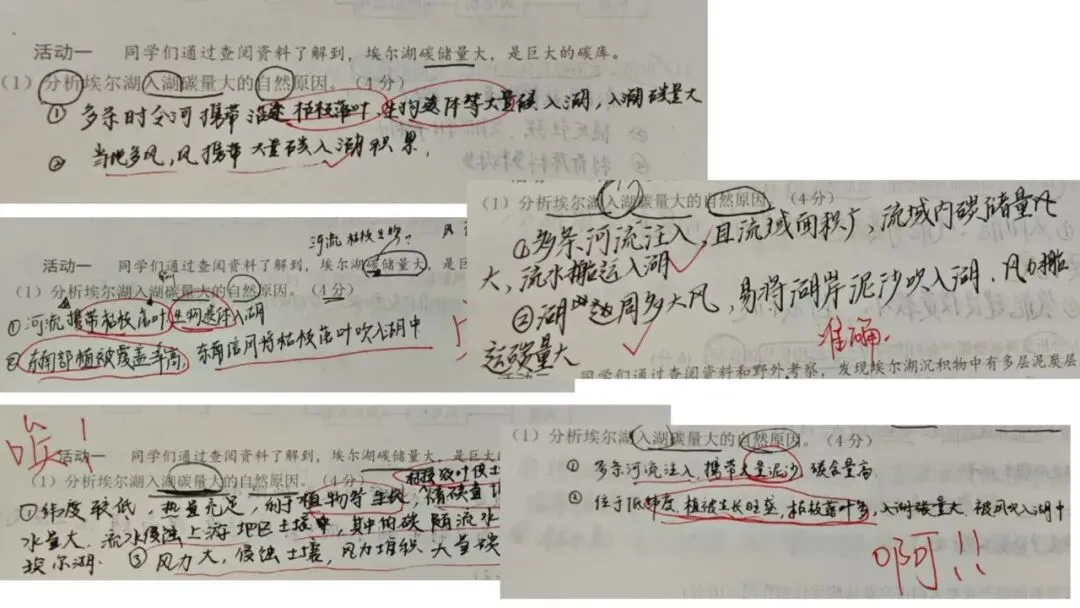 活动一 同学们通过查阅资料了解到，埃尔湖碳储量大，是巨大的碳库。
(1) 分析埃尔湖入湖碳量大的自然原因。(4分)
① 多条时令河携带沿途枯枝落叶，生物遗体等大量碳入湖，入湖碳量大
② 当地多风，风携带大量碳入湖积累，
河流 枯枝生物？ 风
活动一 同学们通过查阅资料了解到，埃尔湖碳储量大，是巨
(1) 分析埃尔湖入湖碳量大的自然原因。(4分)
①河流携带枯枝落叶生物遗体入湖
②东南部植被覆盖率高，东南信风将枯枝落叶吹入湖中
(1) 分析埃尔湖入湖碳量大的自然原因。(4分)
①多条河流注入，且流域面积广，流域内碳储量
大，流水搬运入湖
②湖 周边多大风，易将湖岸泥沙吹入湖，风力搬
运碳量大
准确.
同学们通过查阅资料和野外考察，发现埃尔湖沉积物中有多层泥炭层
唉！
活动一 同学们通过查阅资料了解到，埃尔湖碳储量大，是巨大
(1) 分析埃尔湖入湖碳量大的自然原因。(4分)
①纬度较低，热量充足，利于植物等生长，
水量大，流水侵蚀上游地区土壤，其中的碳随流水
埃尔湖. ③风力大，侵蚀土壤，风力堆积大量碳
(1) 分析埃尔湖入湖碳量大的自然原因。(4分)
① 多条河流注入，携带大量泥沙 碳含量高
② 位于低纬度，植被生长旺盛，枯枝落叶多，入湖碳量大 被风吹入湖中
啊!!